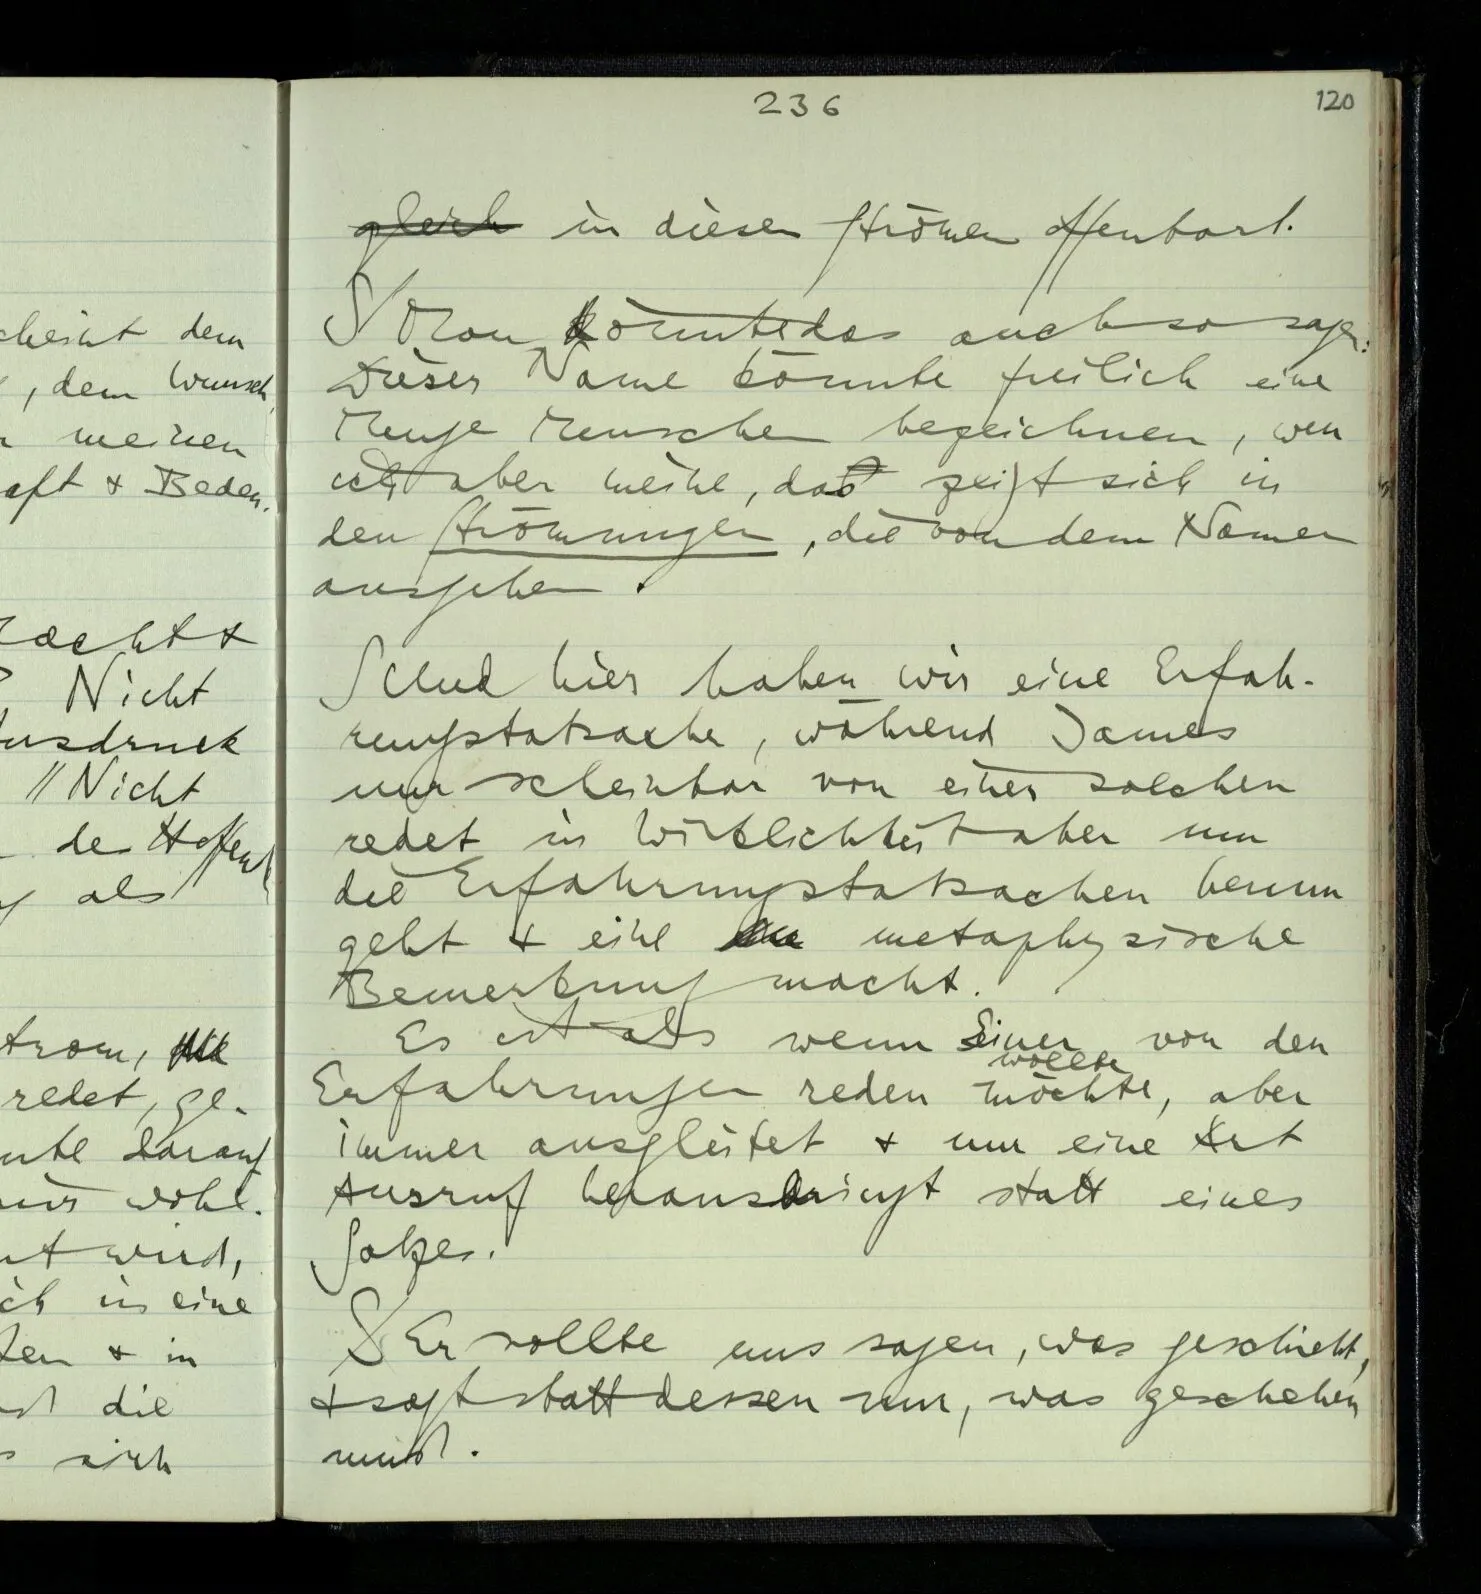 cheint dem
, dem Wunsch,
meinen
aft & Bedeu.
Macht &
Nicht
Ausdruck
// Nicht
der Hoffent
als
Strom,
redet, ge-
nte darauf
wohl.
wird,
ich in eine
ten & in
die
sich
236
120
gleich in diesen Strömen offenbart.
S Man könnte das auch so sagen:
Dieser Name könnte freilich eine
Menge Menschen bezeichnen, wen
ich aber meine, das zeigt sich in
den Strömungen, die von dem Namen
ausgehen.
S Und hier haben wir eine Erfah-
rungstatsache, während James
nur scheinbar von einer solchen
redet in Wirklichkeit aber um
die Erfahrungstatsachen herum
geht & eine metaphysische
Bemerkung macht.
Es ist als wenn Einer von den
wollte
Erfahrungen reden möchte, aber
immer ausgleitet & nur eine Art
Ausruf herausbringt statt eines
Satzes.
S Er sollte uns sagen, was geschieht,
& sagt statt dessen nur, was geschehen
muß.